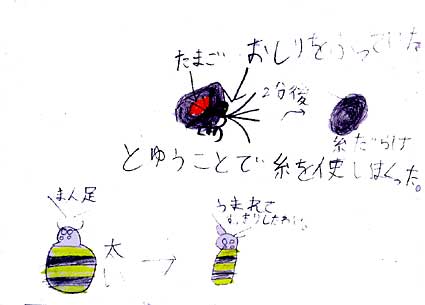 たまご
おしりをふっていた
2分後
糸だらけ
とゆうことで糸を使いまくった。
まん足
太い
うまれて
すっきりした